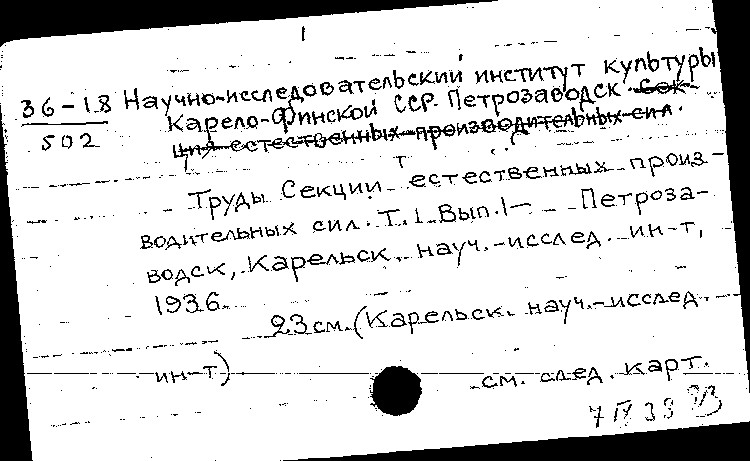 1
36-18 Научно-исследовательский институт культуры
502 Карело-Финской ССР. Петрозаводск. Сек-
ция естественных производительных сил.
Труды Секции естественных произ-
водительных сил. Т.1 Вып.1- Петроза-
водск, Карельск. науч.-исслед. ин-т,
1936.
23 см. (Карельск. науч.-исслед.
ин-т)
см. след. карт.
7 IV 39